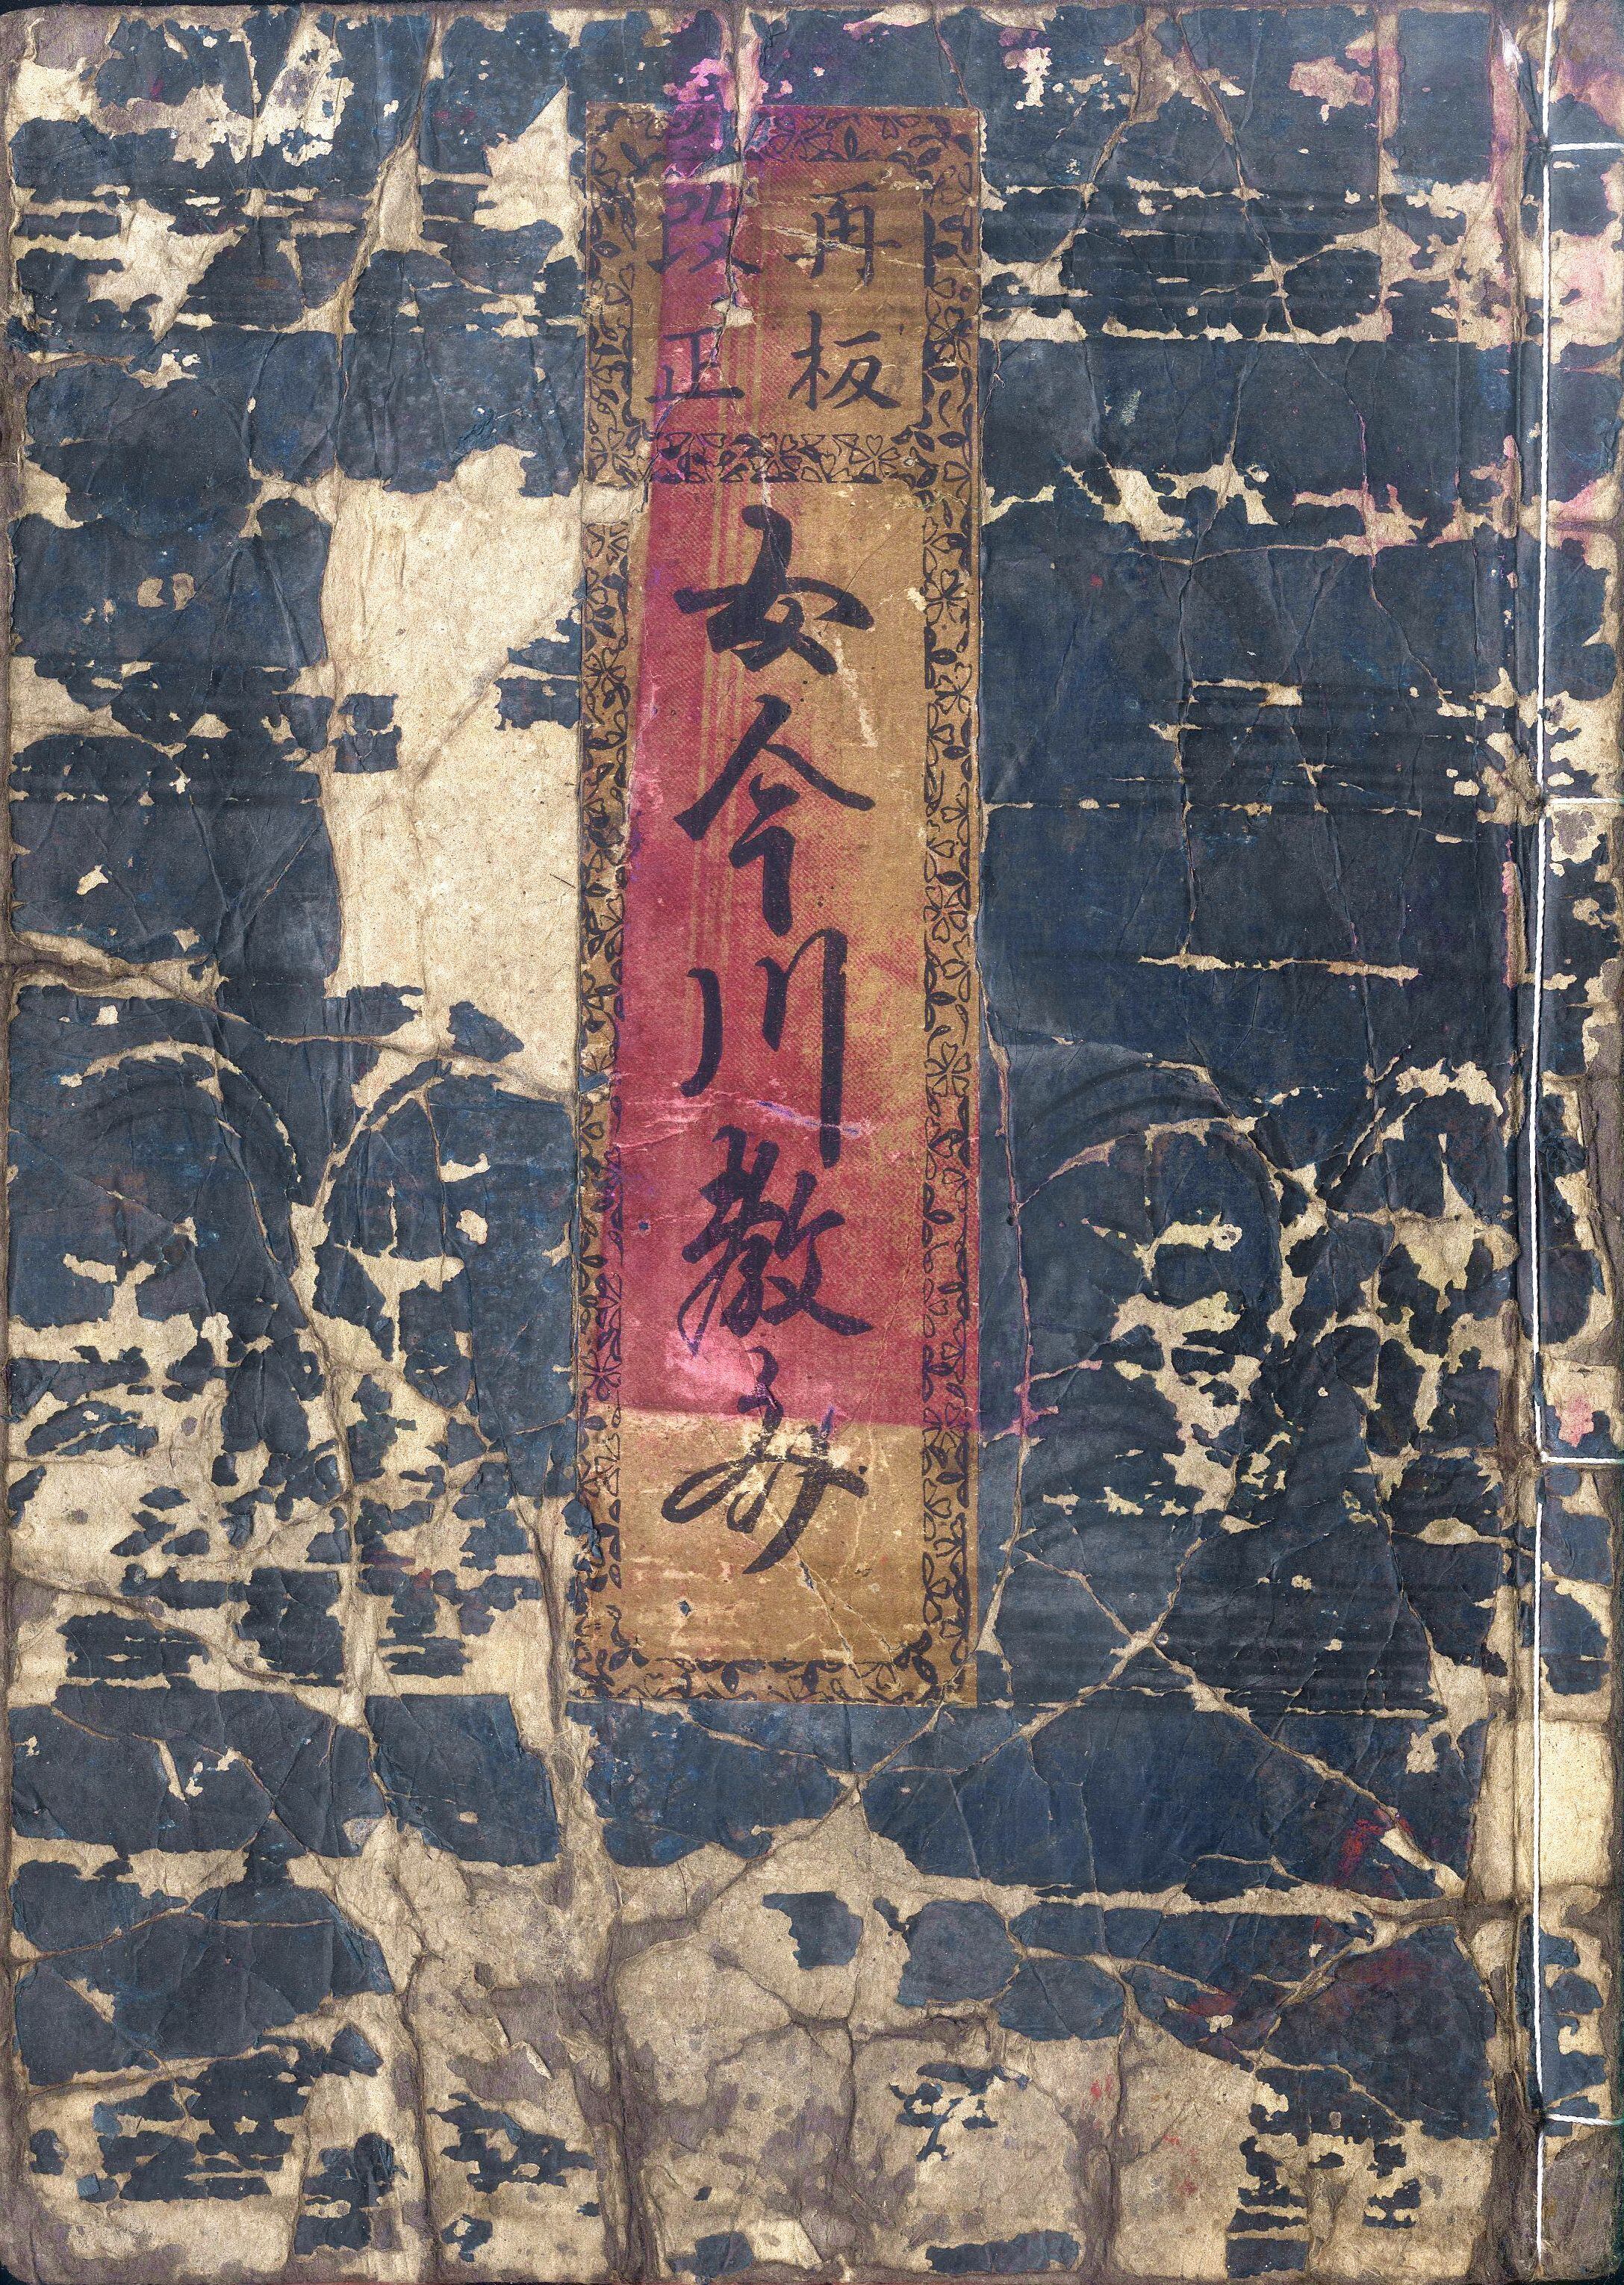 再板
改正
女今川教文